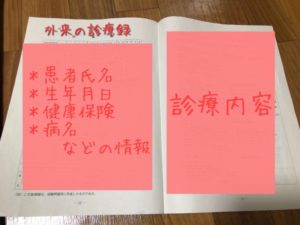 外来の診療録
*患者氏名
*生年月日
*健康保険
*病名
などの情報
診療内容